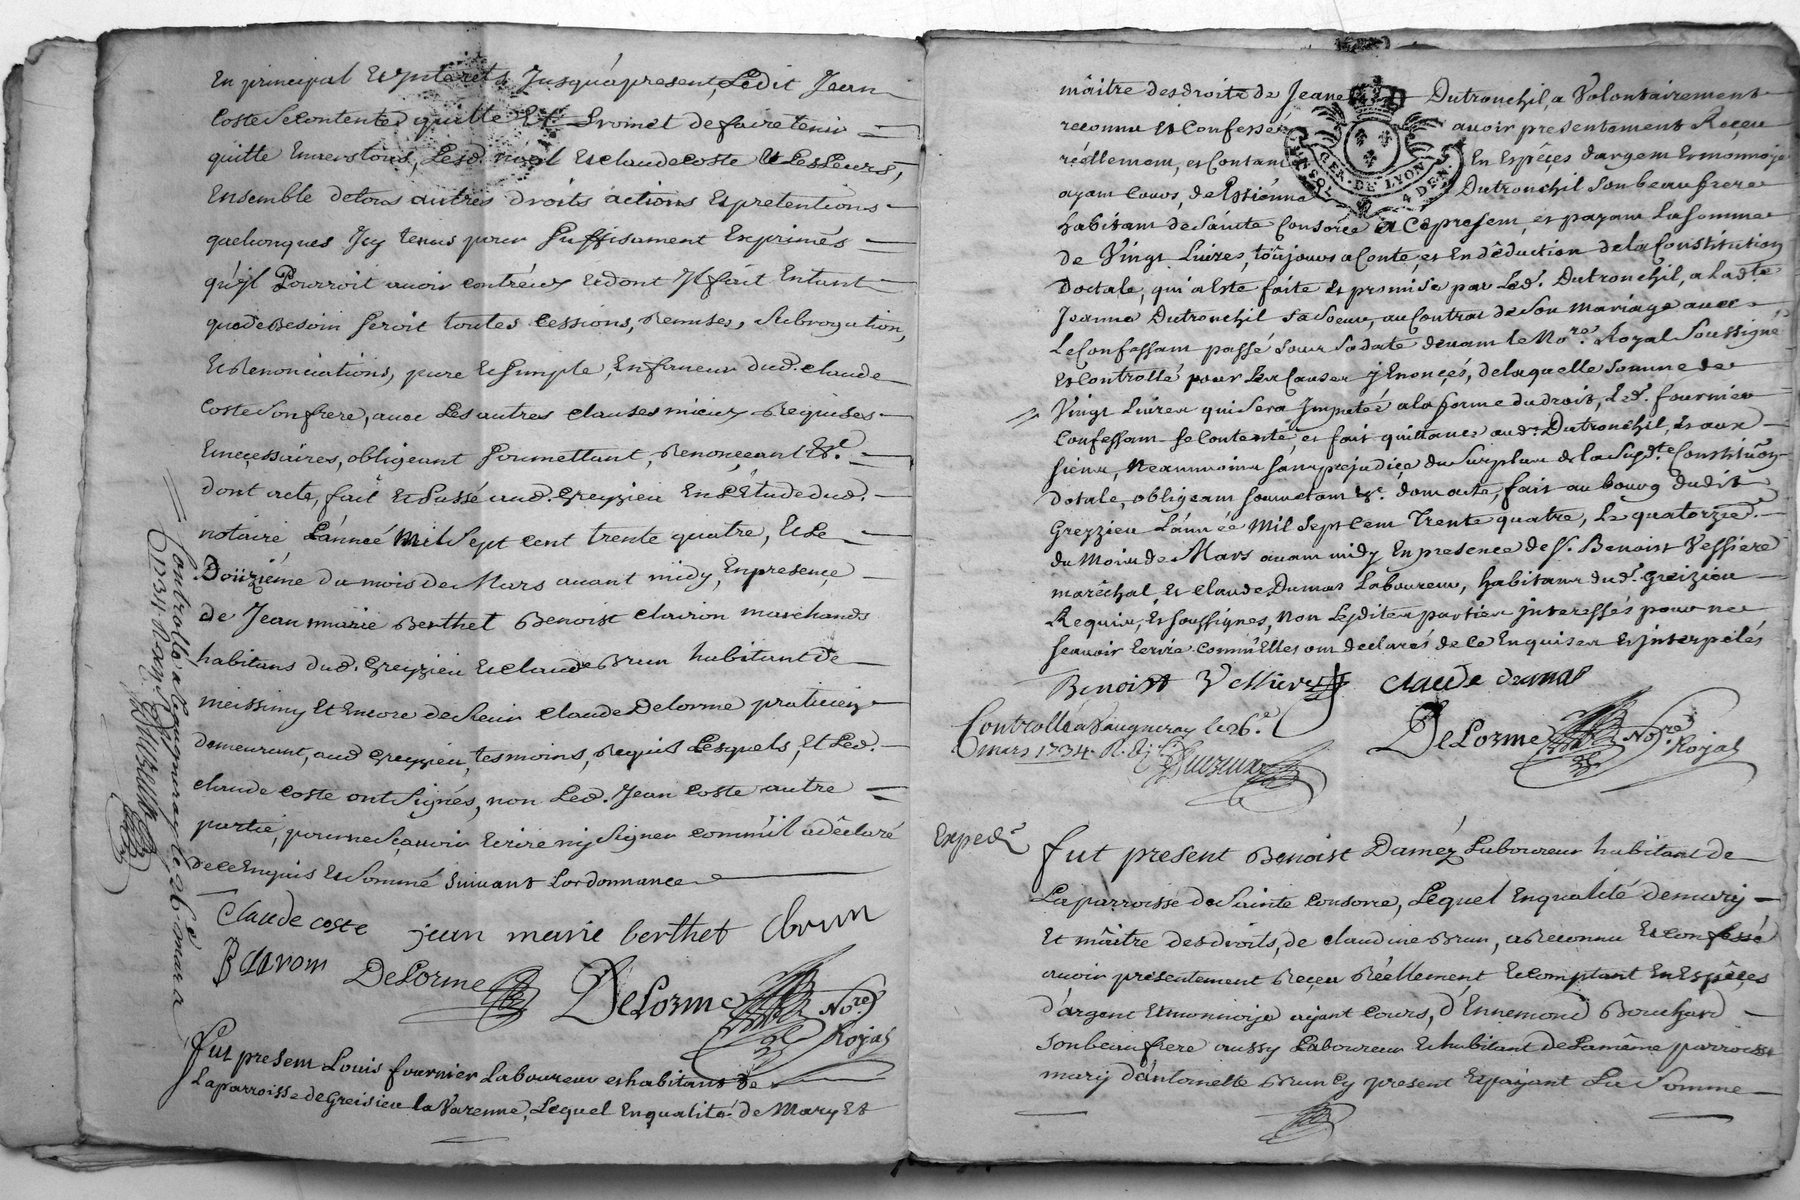 En principal Et Jnterets Jusqu'a present, Ledit Jean
Coste Se Contente, quitte Et Promet de faire tenir
quitte Envers tous, Lesd. Et Claude Coste Et Les Leurs,
Ensemble de tous autres Droits actions Et pretentions
quelconques Jcy tenus pour Suffisament Exprimés
qu'jl Pourroit avoir contr'eux Et dont Jl fait Entant
que de Besoin Seroit toutes Cessions, Remises, Subrogation,
Et Renonciations, pure Et Simple, En faveur dud. Claude
Coste Son frere, avec Les autres Clauses mieux Requises
Et necessaires, obligeant Soumettant, Renonçeant &c.
dont acte, fait Et Passé aud. Greyzieu En L'Etude dud.
notaire L'année Mil Sept Cent trente quatre, Et Le
Doüzième du mois de Mars avant midy, En presençe
de Jean marie Berthet Benoist Clairon marchands
habitans dud. Greyzieu Et Claude Brun habitant de
meissimy Et Encore de Sieur Claude Delorme praticien
demeurant, aud Greyzieu, tesmoins, Requis Lesquels, Et Led.
Claude Coste ont Signés, non Led. Jean Coste autre
partie, pour ne Sçavoir Ecrire ny Signer comm'il a dêclaré
de ce Enquis Et Sommé Suivant L'ordonnance
Claude coste jean marie berthet Cbrun
B Clavron DeLorme DeLorme No.re Royal
Controllé a Vaugneray le 26e mars
1734
Fut present Louis fournier Laboureur et habitant de
La parroisse de Greisieu la Varenne, Lequel En qualité de Mary Et
mâitre des droits de Jeane Dutronchil, a Volontairement
reconnu Et Confessé avoir presentement Reçeu
réellement, et Contant En Espêçes d'argent Et monnoje
ayant Cours, de Estienne Dutronchil Son beaufrere
habitant de Sainte Consorce Et Cy present, et payant La Somme
de Vingt Livres, toûjours a Conte, et En dêduction de la Constitution
Doctale, qui a Este faite Et promise par Led. Dutronchil, a ladte
Jeanne Dutronchil Sa Soeur, au Contrat de Son Mariage avec
Le Confessant passé Sous Sa date devant le Nore. Royal Soussigné
Et Controllé pour Les Causes y Enonçés, de laquelle Somme de
Vingt Livres qui Sera Jmputée a la forme du droit, Led. fournier
Confessant Se Contente, et fait quittance aud. Dutronchil, Et aux
Siens, Neanmoins Sans prejudiçe du Surplus de la Susdte Constituõn
Dotale, obligeant Soumetant &c. dont acte, fait au bourg dudit
Greyzieu L'année Mil Sept Cent Trente quatre, Le quatorzie.
du Mois de Mars avant midy En presence de S. Benoist Vessiere
marêchal, Et Claude Dumas Laboureur, habitans dud. Greizieu
Requis, Et Soussignés, Non Lesdites parties jnteressés pour ne
Sçavoir Ecrire Comm'Elles ont declarés de Ce Enquises Et jnterpelés
Benoist Vessiere Claude dumas
Controllé a Vaugneray le 26.e
mars 1734
DeLorme Nore. Royal
GEN. DE LYON
4 DEN.
Exped.
Fut present Benoist Daméz Laboureur habitant de
La parroisse de Sainte Consorce, Lequel En qualité de mary
Et mâitre des droits, de Claudine Brun, a Reconnu Et Confessé
avoir présentement Reçeu Réellement, Et comptant En Espêçes
d'argent Et monnoije aijant Cours, d'Ennemond Bouchard
Son beaufrere aussy Laboureur Et habitant de La même parroisse
mary d'antoinette Brun Cy present Et paijant La Somme